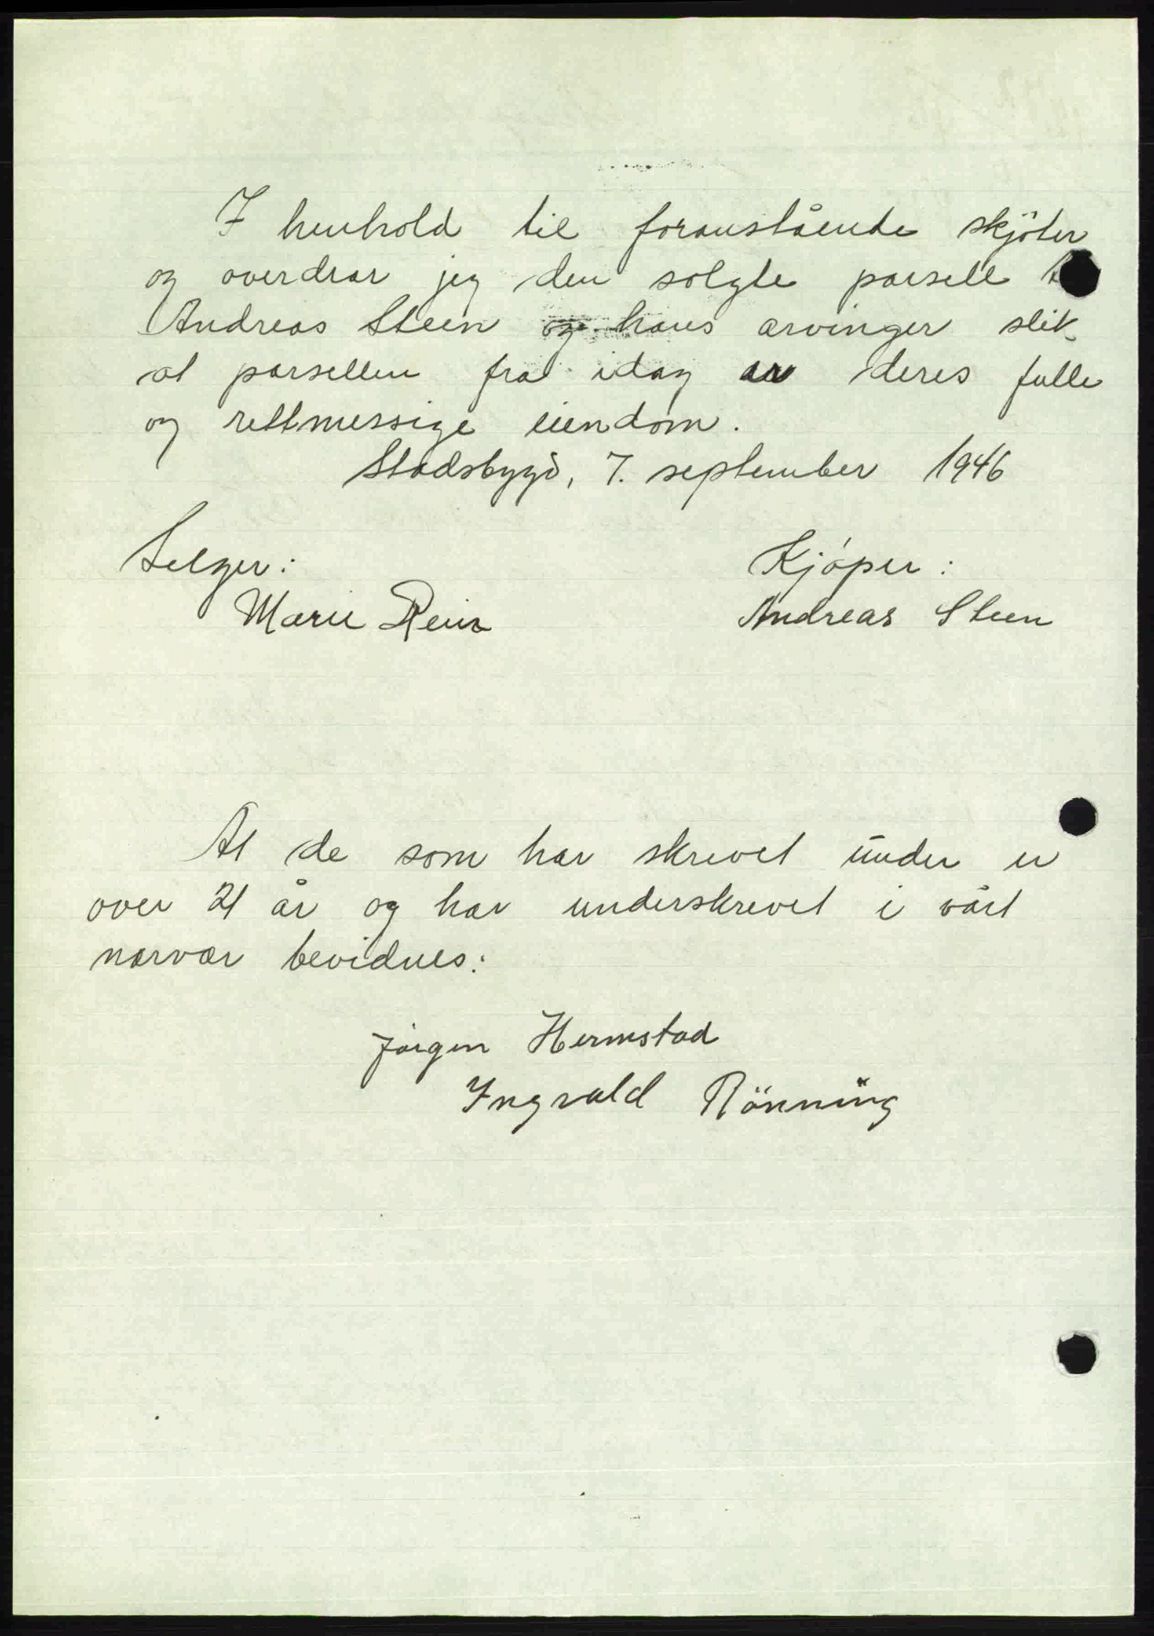 I henhold til foranstående skjöter
og overdrar jeg den solgte parsell
Andreas Steen og hans arvinger slik
at parsellen fra idag er deres fulle
og rettmessige eiendom.
Stadsbygd, 7. september 1946
Selger: Kjöper:
Marie Rein Andreas Steen
At de som har skrevet under er
over 21 år og har underskrevet i vårt
nærvær bevidnes:
Jörgen Hermstad
Ingvald Rönning